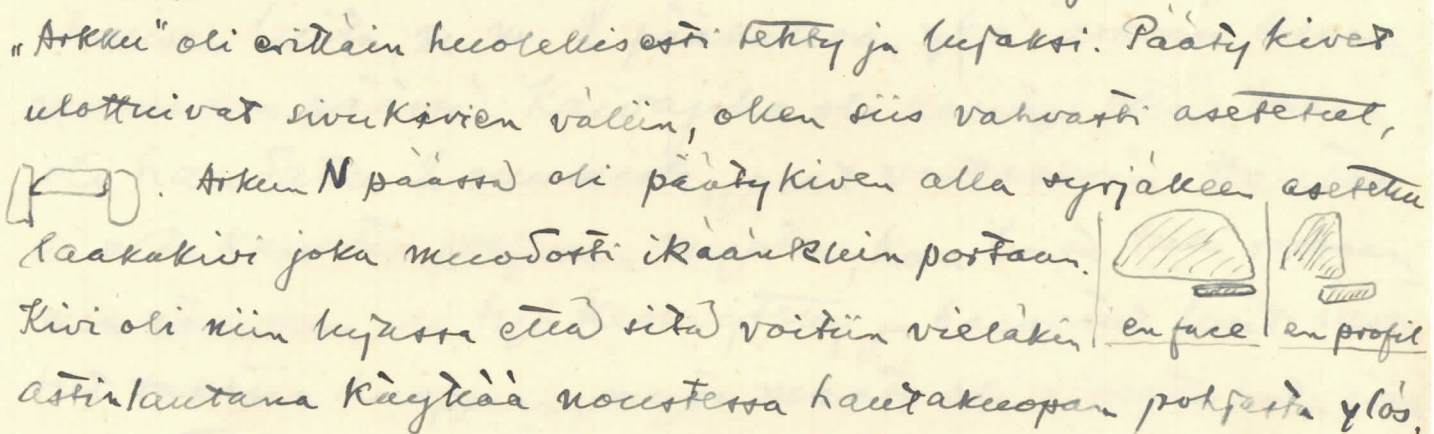 „Arkku" oli erittäin huolellisesti tehty ja lujaksi. Päätykivet
ulottuivat sivukivien väliin, ollen siis vahvasti asetetut,
. Arkun N päässä oli päätykiven alla syrjäkeen asetettu
laakakivi joka muodosti ikäänkuin portaan.
Kivi oli niin lujassa että sitä voitiin vieläkin
en face en profil
astinlautana käyttää noustessa hautakuopan pohjasta ylös.